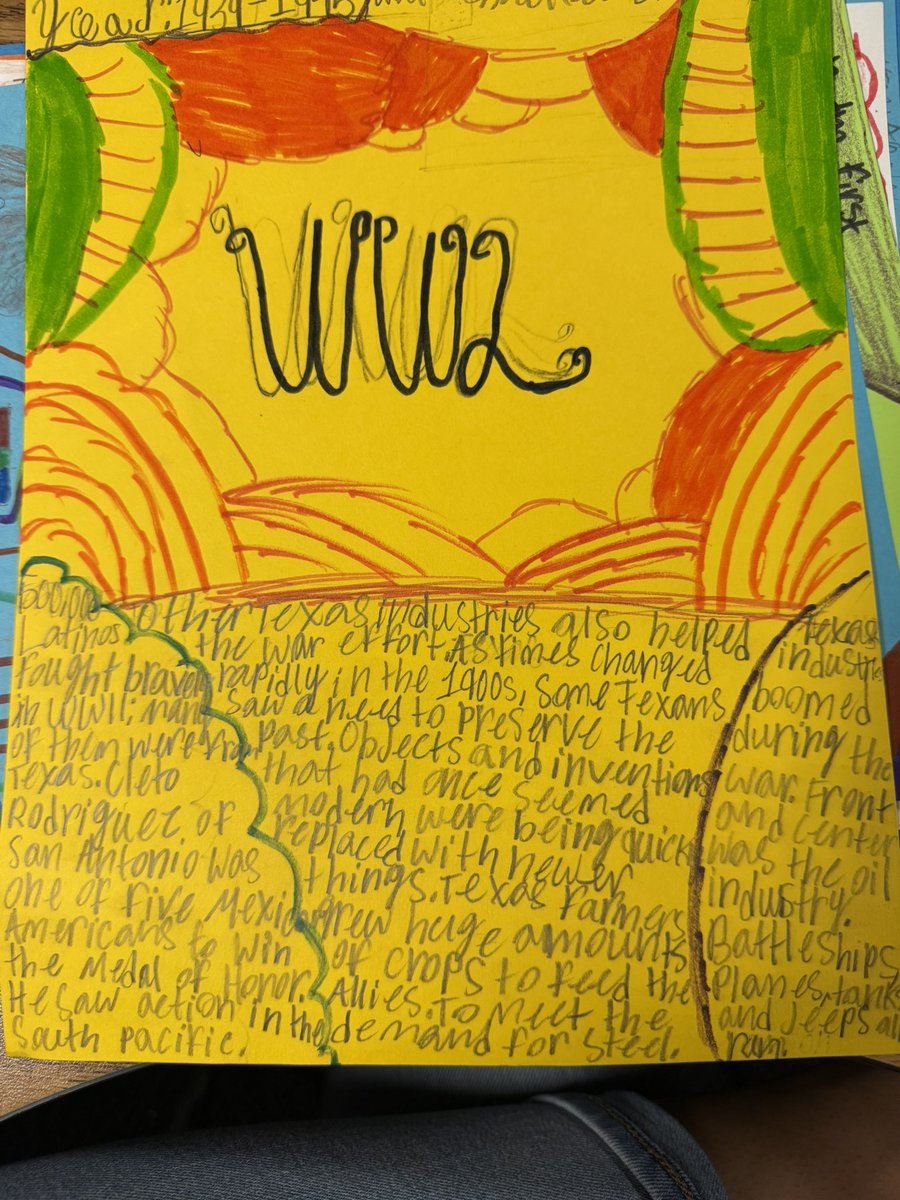 Year: 1939-1945
WW2
500,000
Latinos
fought bravely
in WWII; many
of them were from
Texas. Cleto
Rodriguez of
San Antonio was
one of five Mexican
Americans to win
the Medal of Honor.
He saw action in the
South Pacific.
Other Texas industries also helped
the war effort. As times changed
rapidly in the 1900s, some Texans
saw a need to preserve the
Past. Objects and inventions
that had once seemed
modern were being quick
replaced with newer
things. Texas farmers
grew huge amounts
of crops to feed the
Allies. To meet the
demand for steel.
Texas
industries
boomed
during the
war. Front
and center
was the oil
industry.
Battleships,
Planes, tanks
and Jeeps all
ran.
first